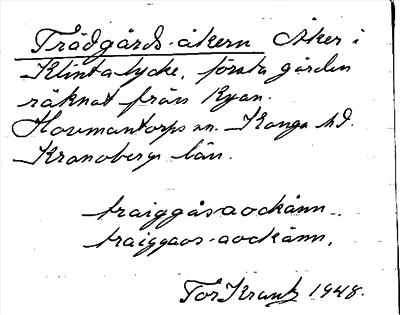 Trädgårds-åkern Åker i
Klintalycke, första gården
räknat från Ryan.
Hovmantorps sn. Konga hd.
Kronobergs län.
traiggåsaockänn..
traiggaos-aockänn,
Tor Krantz 1948.